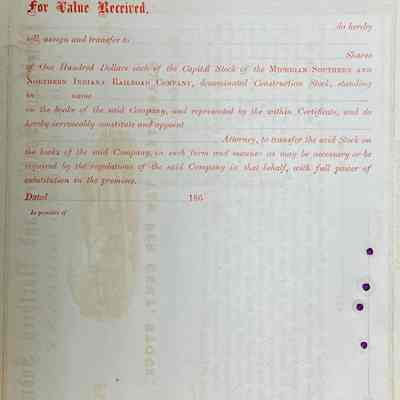 For Value Received,
do hereby
sell, assign and transfer to
Shares
of One Hundred Dollars each of the Capital Stock of the Michigan Southern and
Northern Indiana Railroad Company, denominated Construction Stock, standing
in name
on the books of the said Company, and represented by the within Certificate, and do
hereby irrevocably constitute and appoint
Attorney, to transfer the said Stock on
the books of the said Company, in such form and manner as may be necessary or be
required by the regulations of the said Company in that behalf, with full power of
substitution in the premises.
Dated 186
In presence of